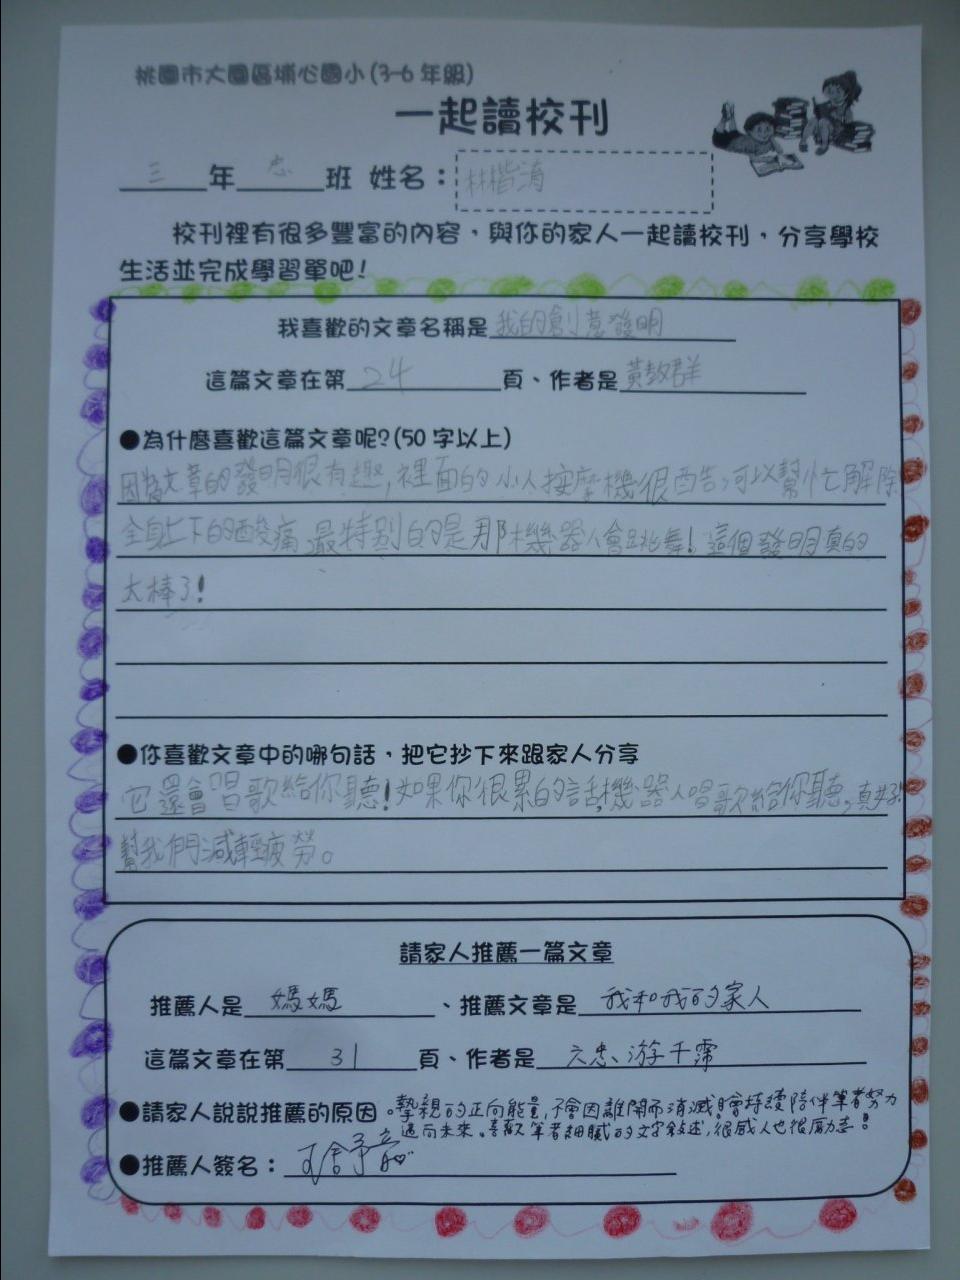 桃園市大園區埔心國小(3-6年級)
一起讀校刊
三年忠班 姓名：林楷淯
校刊裡有很多豐富的內容，與你的家人一起讀校刊，分享學校
生活並完成學習單吧！
我喜歡的文章名稱是我的創意發明
這篇文章在第24頁、作者是黃啟群
●為什麼喜歡這篇文章呢?(50字以上)
因為文章的發明很有趣,裡面的小人按摩機很酷,可以幫忙解除
全身上下的酸痛,最特別的是那機器人會跳舞!這個發明真的
太棒了!
●你喜歡文章中的哪句話，把它抄下來跟家人分享
它還會唱歌給你聽!如果你很累的話,機器人唱歌給你聽,真好!
幫我們減輕疲勞。
請家人推薦一篇文章
推薦人是媽媽、推薦文章是我和我的家人
這篇文章在第31頁、作者是六忠 游千霈
●請家人說說推薦的原因。摯親的正向能量,不會因離開而消滅!會持續陪伴筆者努力
邁向未來。喜歡筆者細膩的文字敘述,很感人也很勵志!
●推薦人簽名：